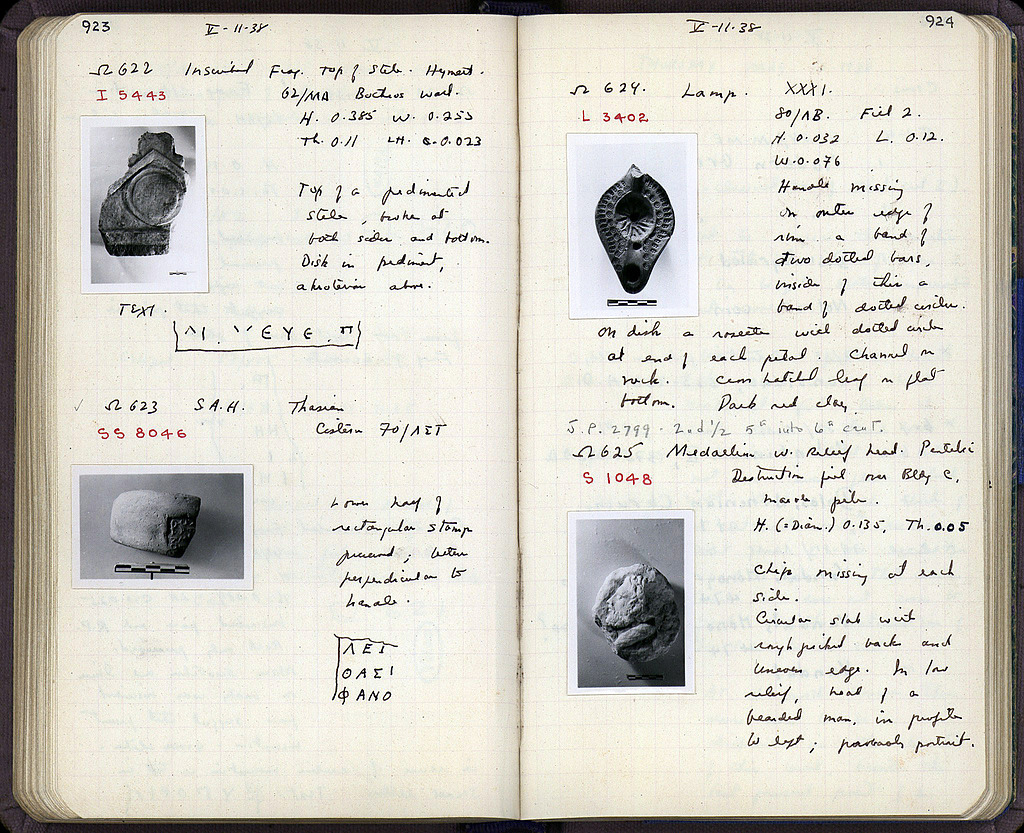 923
V-11-38
Ω 622 Inscribed Frag. Top of Stele. Hymett.
I 5443
62/ΜΑ Bothros wall.
H. 0.385 W. 0.253
Th. 0.11 LH. 0.023
Top of a pedimented
stele, broken at
both sides and bottom.
Disk in pediment,
akroterion above.
TEXT.
Ε Υ Ε . Π
Ω 623 S.A.H. Thasian
SS 8046
Cistern 70/ΛΣΤ
Lower half of
rectangular stamp
preserved; letters
perpendicular to
handle.
ΛΕΤ
ΟΑΣΙ
ΦΑΝΟ
924
V-11-38
Ω 624. Lamp. XXXI.
L 3402
80/ΛΒ. Fill 2.
H. 0.032 L. 0.12.
W. 0.076
Handle missing
On outer edge of
rim a band of
two dotted bars,
inside of this a
band of dotted circles.
On disk a rosette with dotted circle
at end of each petal. Channel on
neck. Cross hatched leaf on flat
bottom. Dark red clay.
J.P. 2799 - 2nd 1/2 5th into 6th cent.
Ω 625 Medallion w. relief head. Pentelic
S 1048
Destruction fill over Bldg C,
marble pile.
H. (=Diam.) 0.135, Th. 0.05
Chips missing at each
side.
Circular slab with
rough picked back and
uneven edge. In low
relief, head of a
bearded man, in profile
to left; portrait.